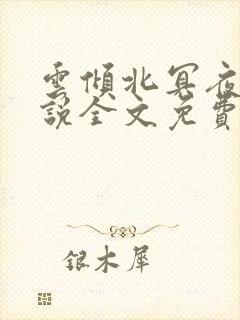 雲傾北冥夜
說全文免費
銀木犀